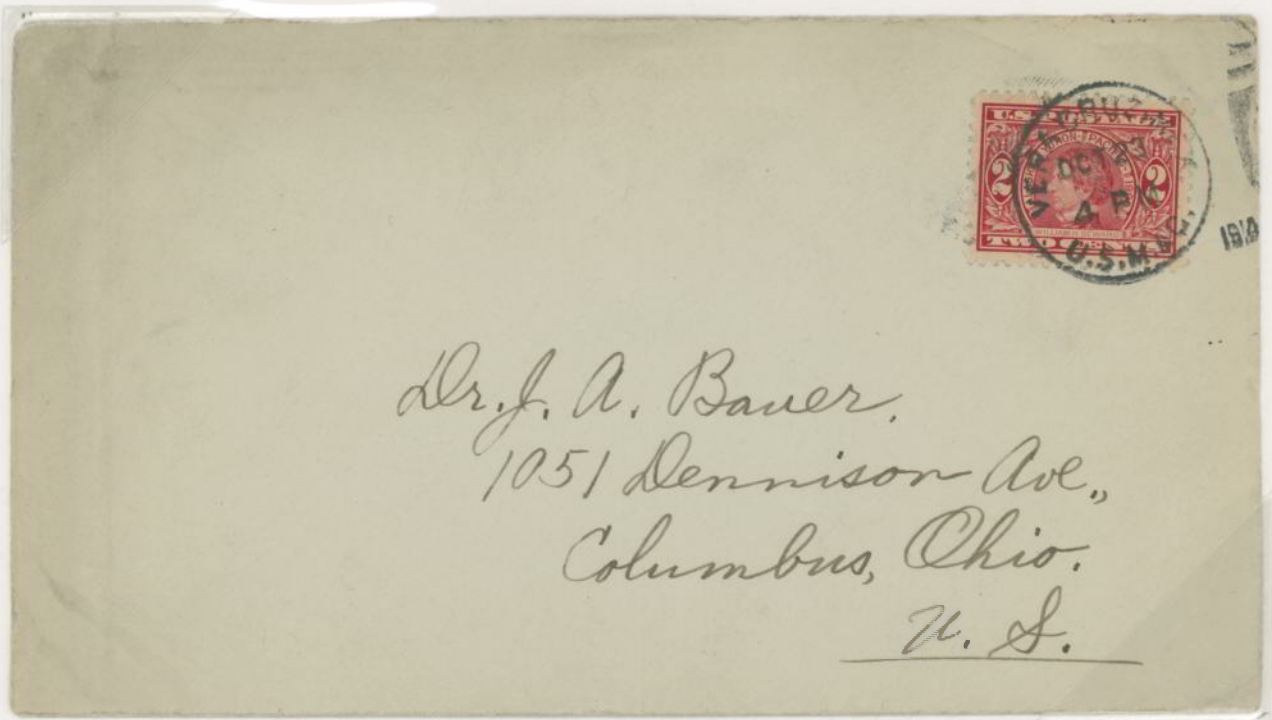 U.S.
2 2
WILLIAM H. SEWARD
TWO CENTS
VERA CRUZ
OCT
4 PM
U.S.M.
1914
Dr. J. A. Bauer.
1051 Dennison Ave.,
Columbus, Ohio.
U. S.